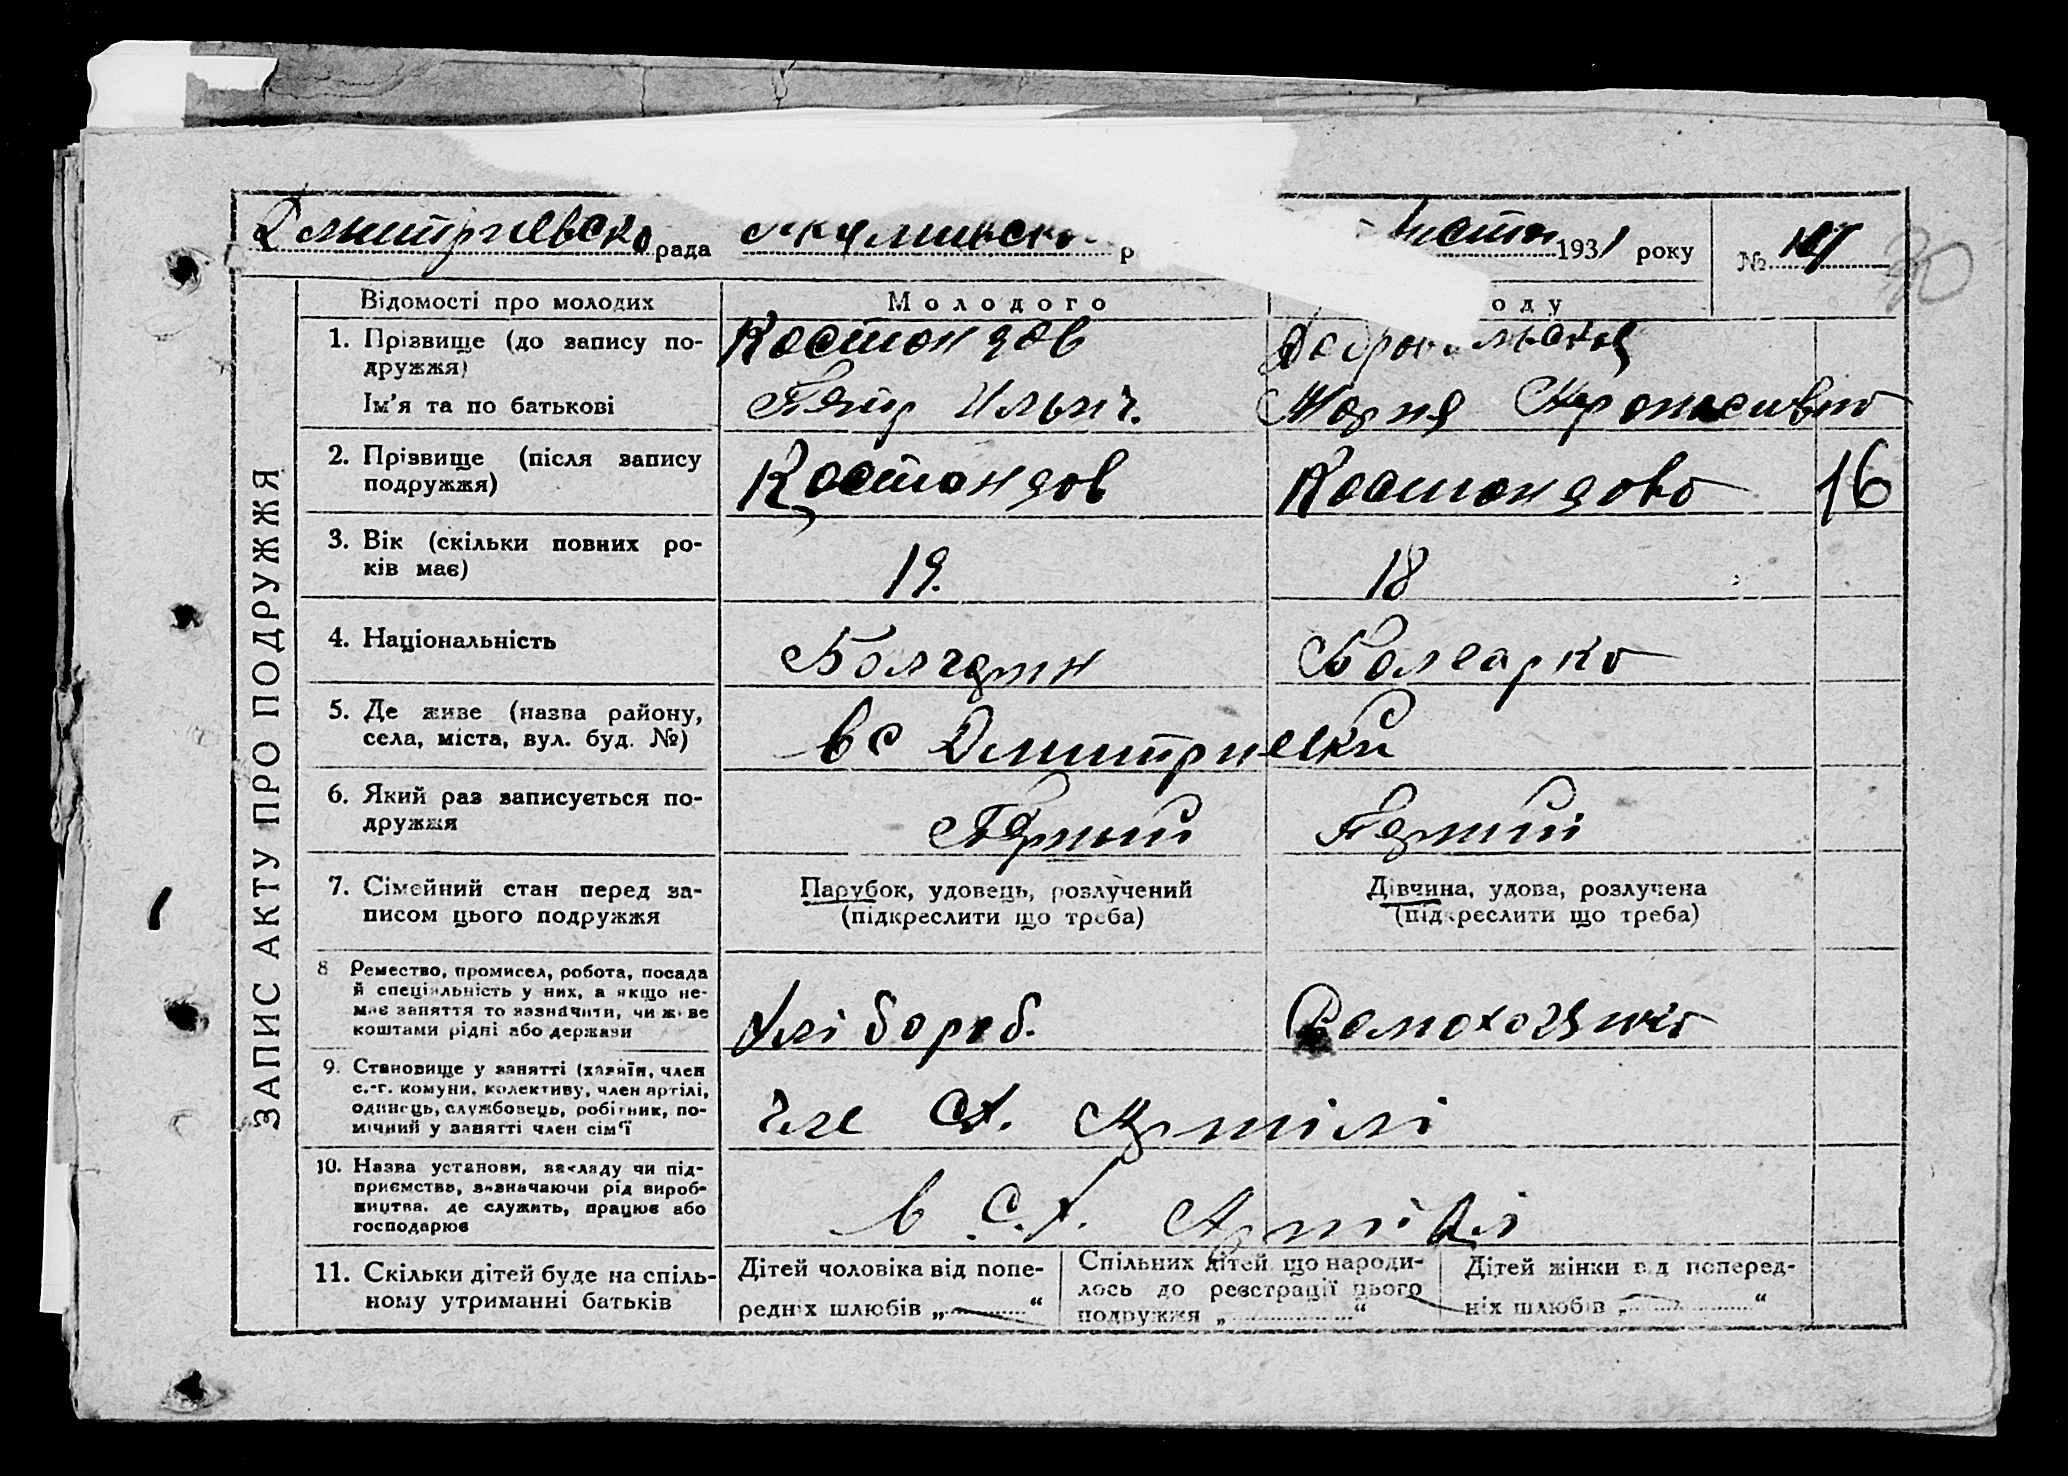 Дмитриевско рада р 1931 року №
Відомості про молодих Молодого оду
1. Прізвище (до запису по-
дружжя)
Костондов
Ім'я та по батькові
Петр Ильич. Мария
2. Прізвище (після запису
подружжя)
Костондов Костондово 16
3. Вік (скільки повних ро-
ків має)
19. 18
4. Національність
Болгарин Болгарко
5. Де живе (назва району,
села, міста, вул. буд. №)
в с Дмитриевки
6. Який раз записується по-
дружжя
Первый Первий
7. Сімейний стан перед за-
писом цього подружжя
Парубок, удовець, розлучений
(підкреслити що треба)
Дівчина, удова, розлучена
(підкреслити що треба)
8 Ремество, промисел, робота, посада
й спеціяльність у них, а якщо не-
має заняття то зазначити, чи живе
коштами рідні або держави
Хлібороб. Домохозяйко
9. Становище у занятті (хазяїн, член
с.-г. комуни, колективу, член артілі,
одинець, службовець, робітник, по-
мічний у занятті член сім'ї
Артілі
10. Назва установи, закладу чи під-
приємства, зазначаючи рід вироб-
ництва, де служить, працює або
господарює
в С.Х. Артілі
11. Скільки дітей буде на спіль-
ному утриманні батьків
Дітей чоловіка від попе-
редніх шлюбів „ “
Спільних дітей, що народи-
лось до реєстрації цього
подружжя „ “
Дітей жінки від поперед-
ніх шлюбів „ “
ЗАПИС АКТУ ПРО ПОДРУЖЖЯ